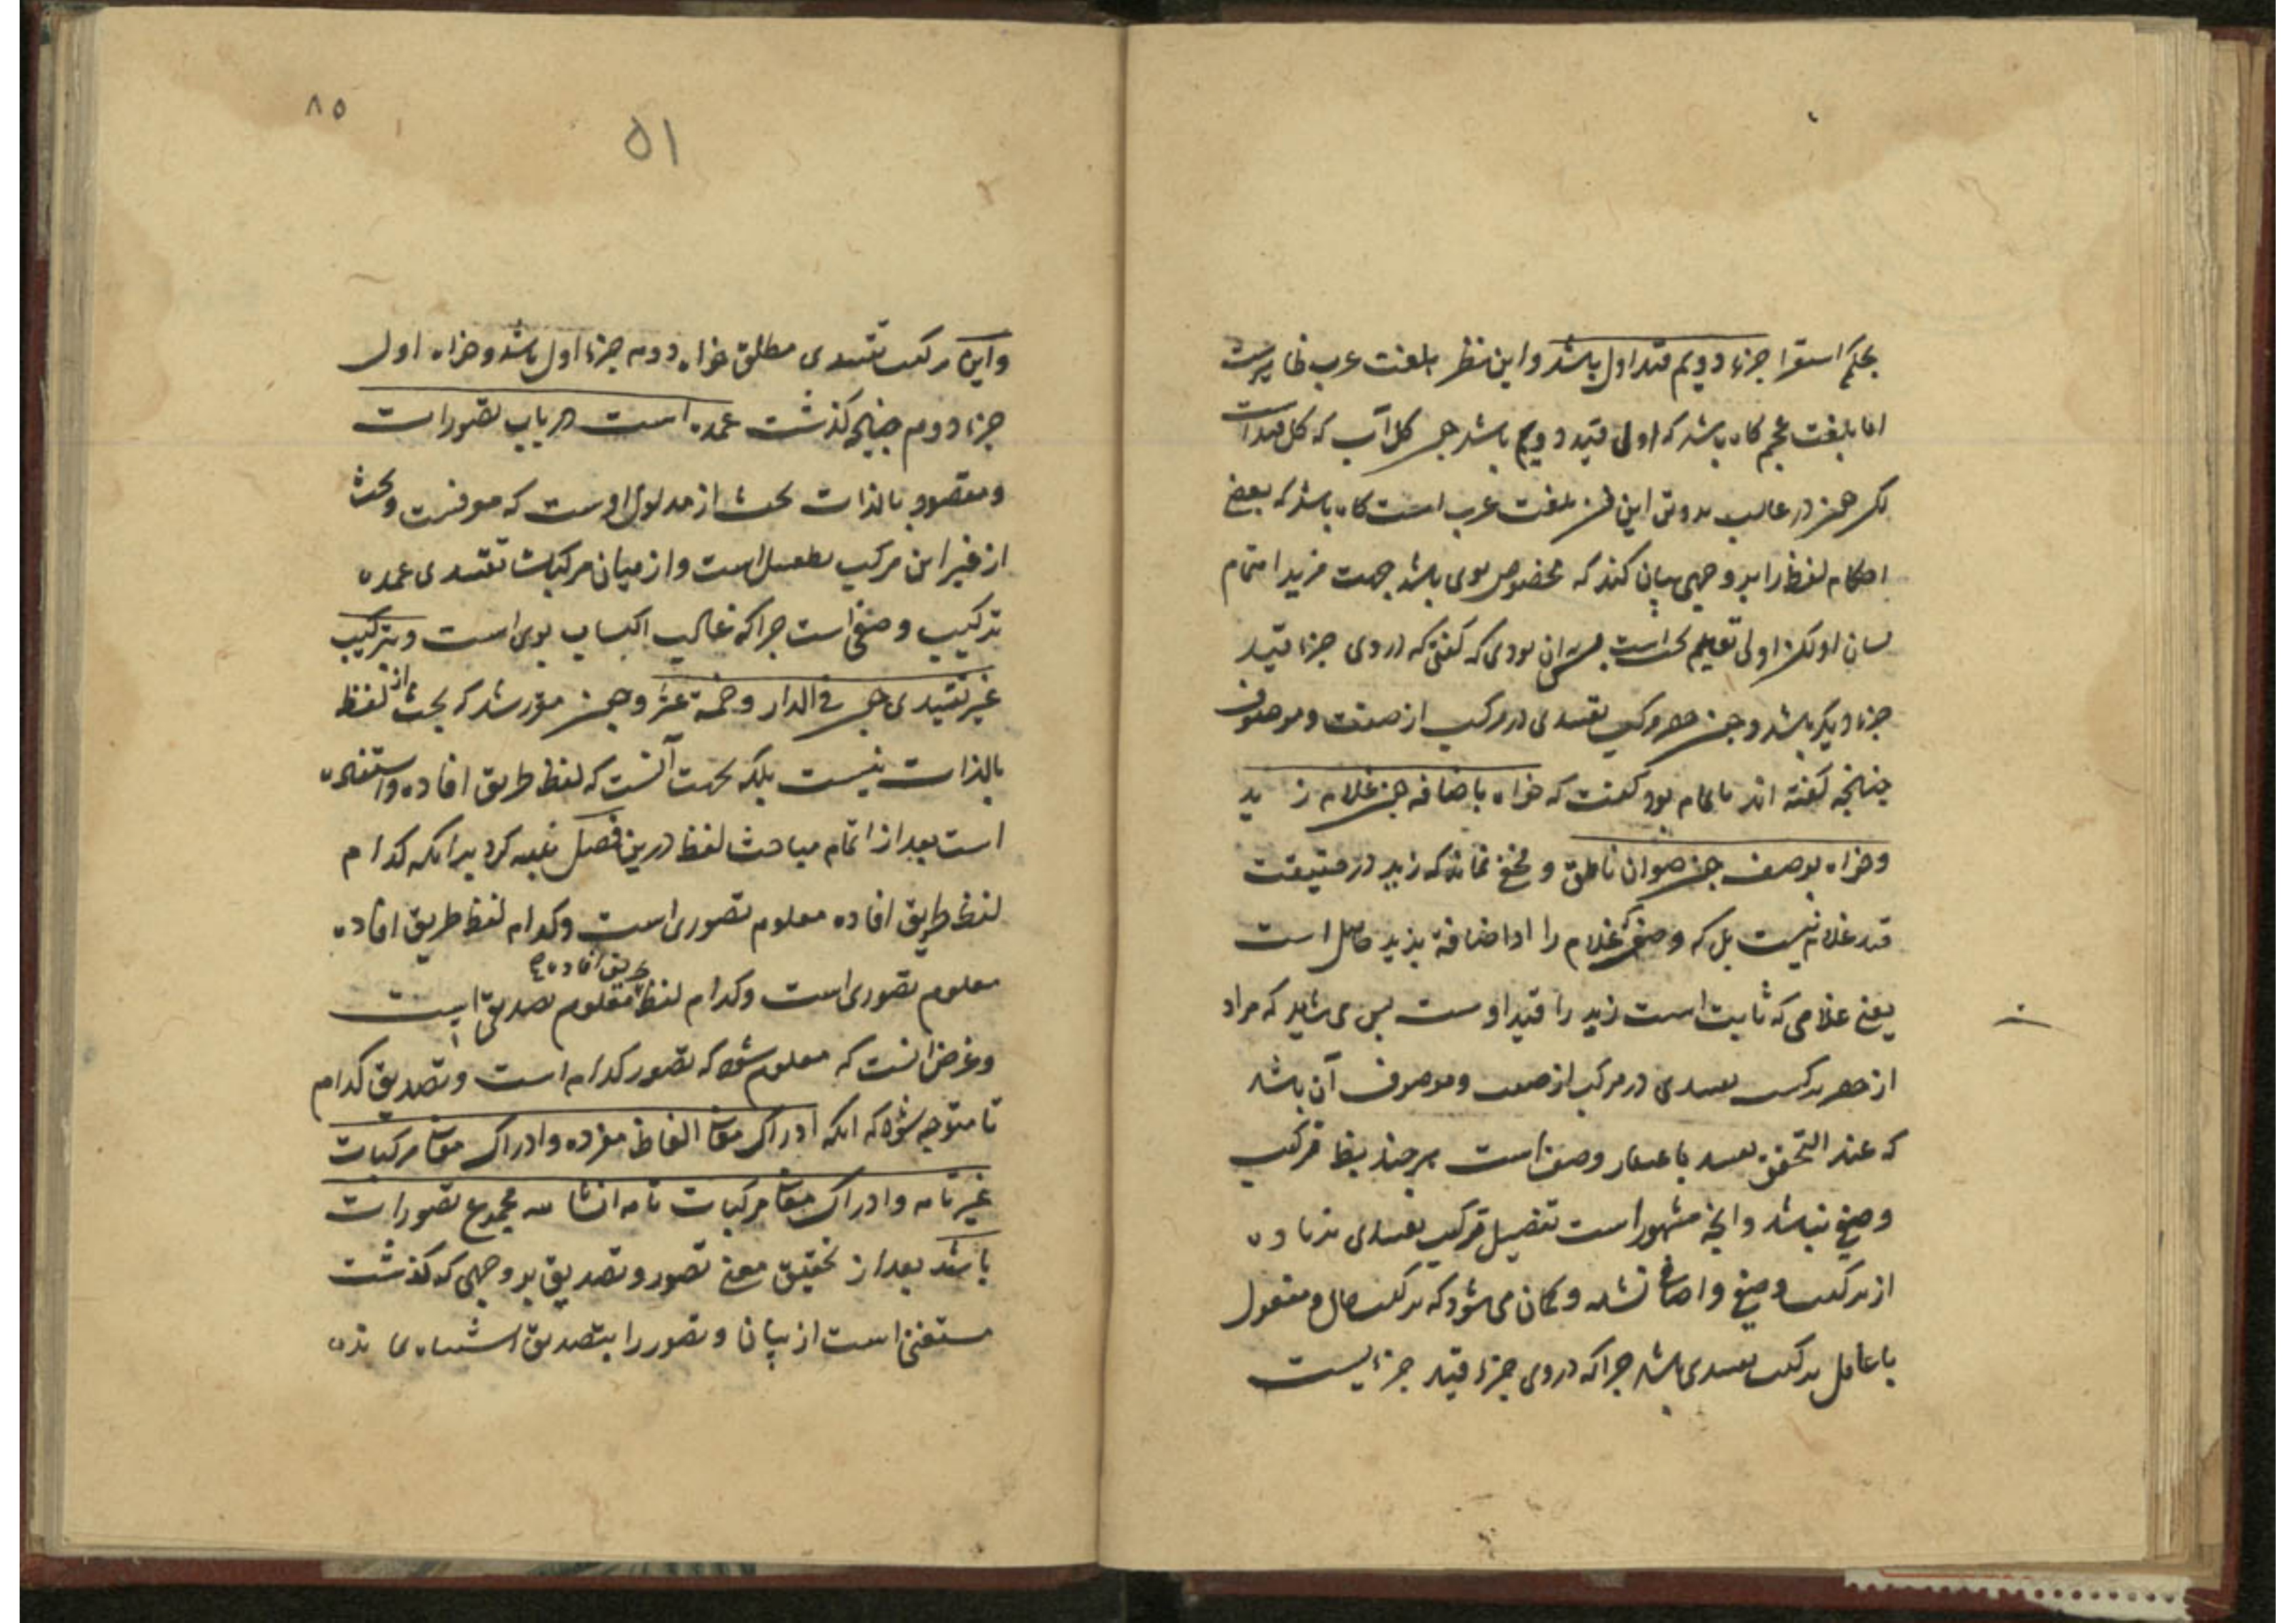 بحکم استقرا جزء دویم قید اول باشد و این نظر بلغت عرب ظاهرست
اما بلغت عجم کاه باشد که اولی قید دویم باشد چون کل آب که کل قید است
لکن چون در غالب تدوین این فن بلغت عرب است کاه باشد که بعضی
احکام لفظ را بر وجهی بیان کنند که مخصوص بوی باشد جهت مزید اهتمام
اولی تعلیم بودی که کفتی که در وی جزء قید
جزء دیکر باشد و چون حصر مرکب تقییدی در مرکب از صفت و موصوف
چنانچه کفته اند ناتمام بود کفت که خواه باضافه چون غلام زید
و خواه بوصف چون حیوان ناطق و مخفی نماند که زید در حقیقت
قید غلام نیست بل که وصفی که غلام را از اضافة بزید حاصل است
یعنی غلامی که ثابت است زید را قید اوست پس می شاید که مراد
از حصر ترکیب تقییدی در مرکب از صفت و موصوف آن باشد
که عند التحقیق تقیید باعتبار وصف است هر چند بنظر ترکیب
وصفی نباشد و آنچه مشهور است تفصیل ترکیب تقییدی زیاده
از ترکیب وصفی و اضافی نشده و کمان می شود که ترکیب حال و مفعول
با عامل ترکیب تقییدی باشد چرا که در وی جزء قید جزءیست
۸۵
۵۱
و این مرکب تقییدی مطلق خواه دوم جزء اول باشد و خواه اول
جزء دوم چنانچه کذشت عمده است در باب تصورات
و مقصود بالذات بحث از مدلول اوست که موقنست و بحث
از غیر این مرکب بطفیل است و از میان مرکبات تقییدی عمده
ترکیب وصفی است چرا که غالب اکتساب بوی است و بترکیب
غیر تقییدی چون فی الدار و خمسة عشر و چون مقرر شد که بحث از لفظ
بالذات نیست بلکه بجهت آنست که لفظ طریق افاده و استفاده
است بعد از اتمام مباحث لفظ درین فصل تنبیه کرد بر آنکه کدام
لفظ طریق افاده معلوم تصوری است و کدام لفظ طریق افاده
طریق افاده
معلوم تصوری است و کدام لفظ معلوم تصدیقی است
و غرض آنست که معلوم شود که تصور کدام است و تصدیق کدام
تا متوجه شود که آنکه ادراک معانی الفاظ مفرده و ادراک معانی مرکبات
غیر تامه و ادراک معانی مرکبات تامه انشائیه مجموع تصورات
باشند بعد از تحقیق معنی تصور و تصدیق بر وجهی که کذشت
مستغنی است از بیان و تصور را بتصدیق اشتباهی نه